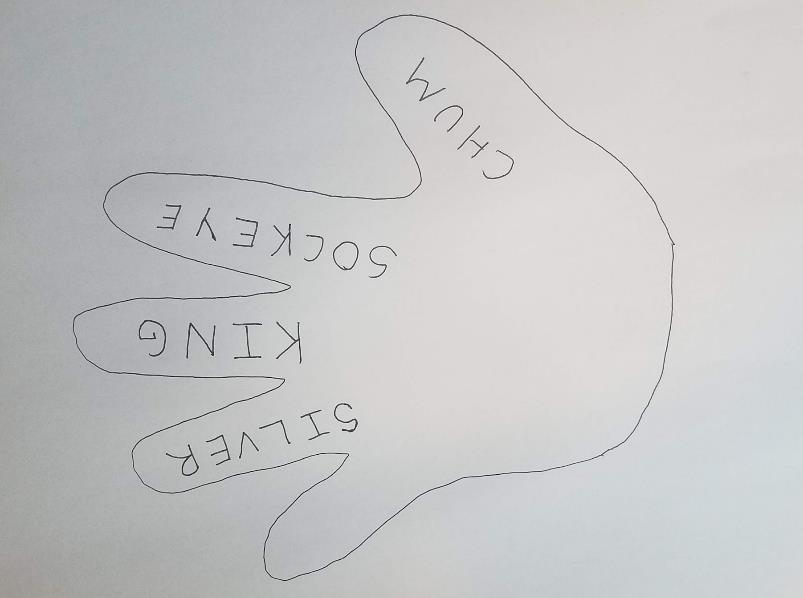 CHUM
SOCKEYE
KING
SILVER